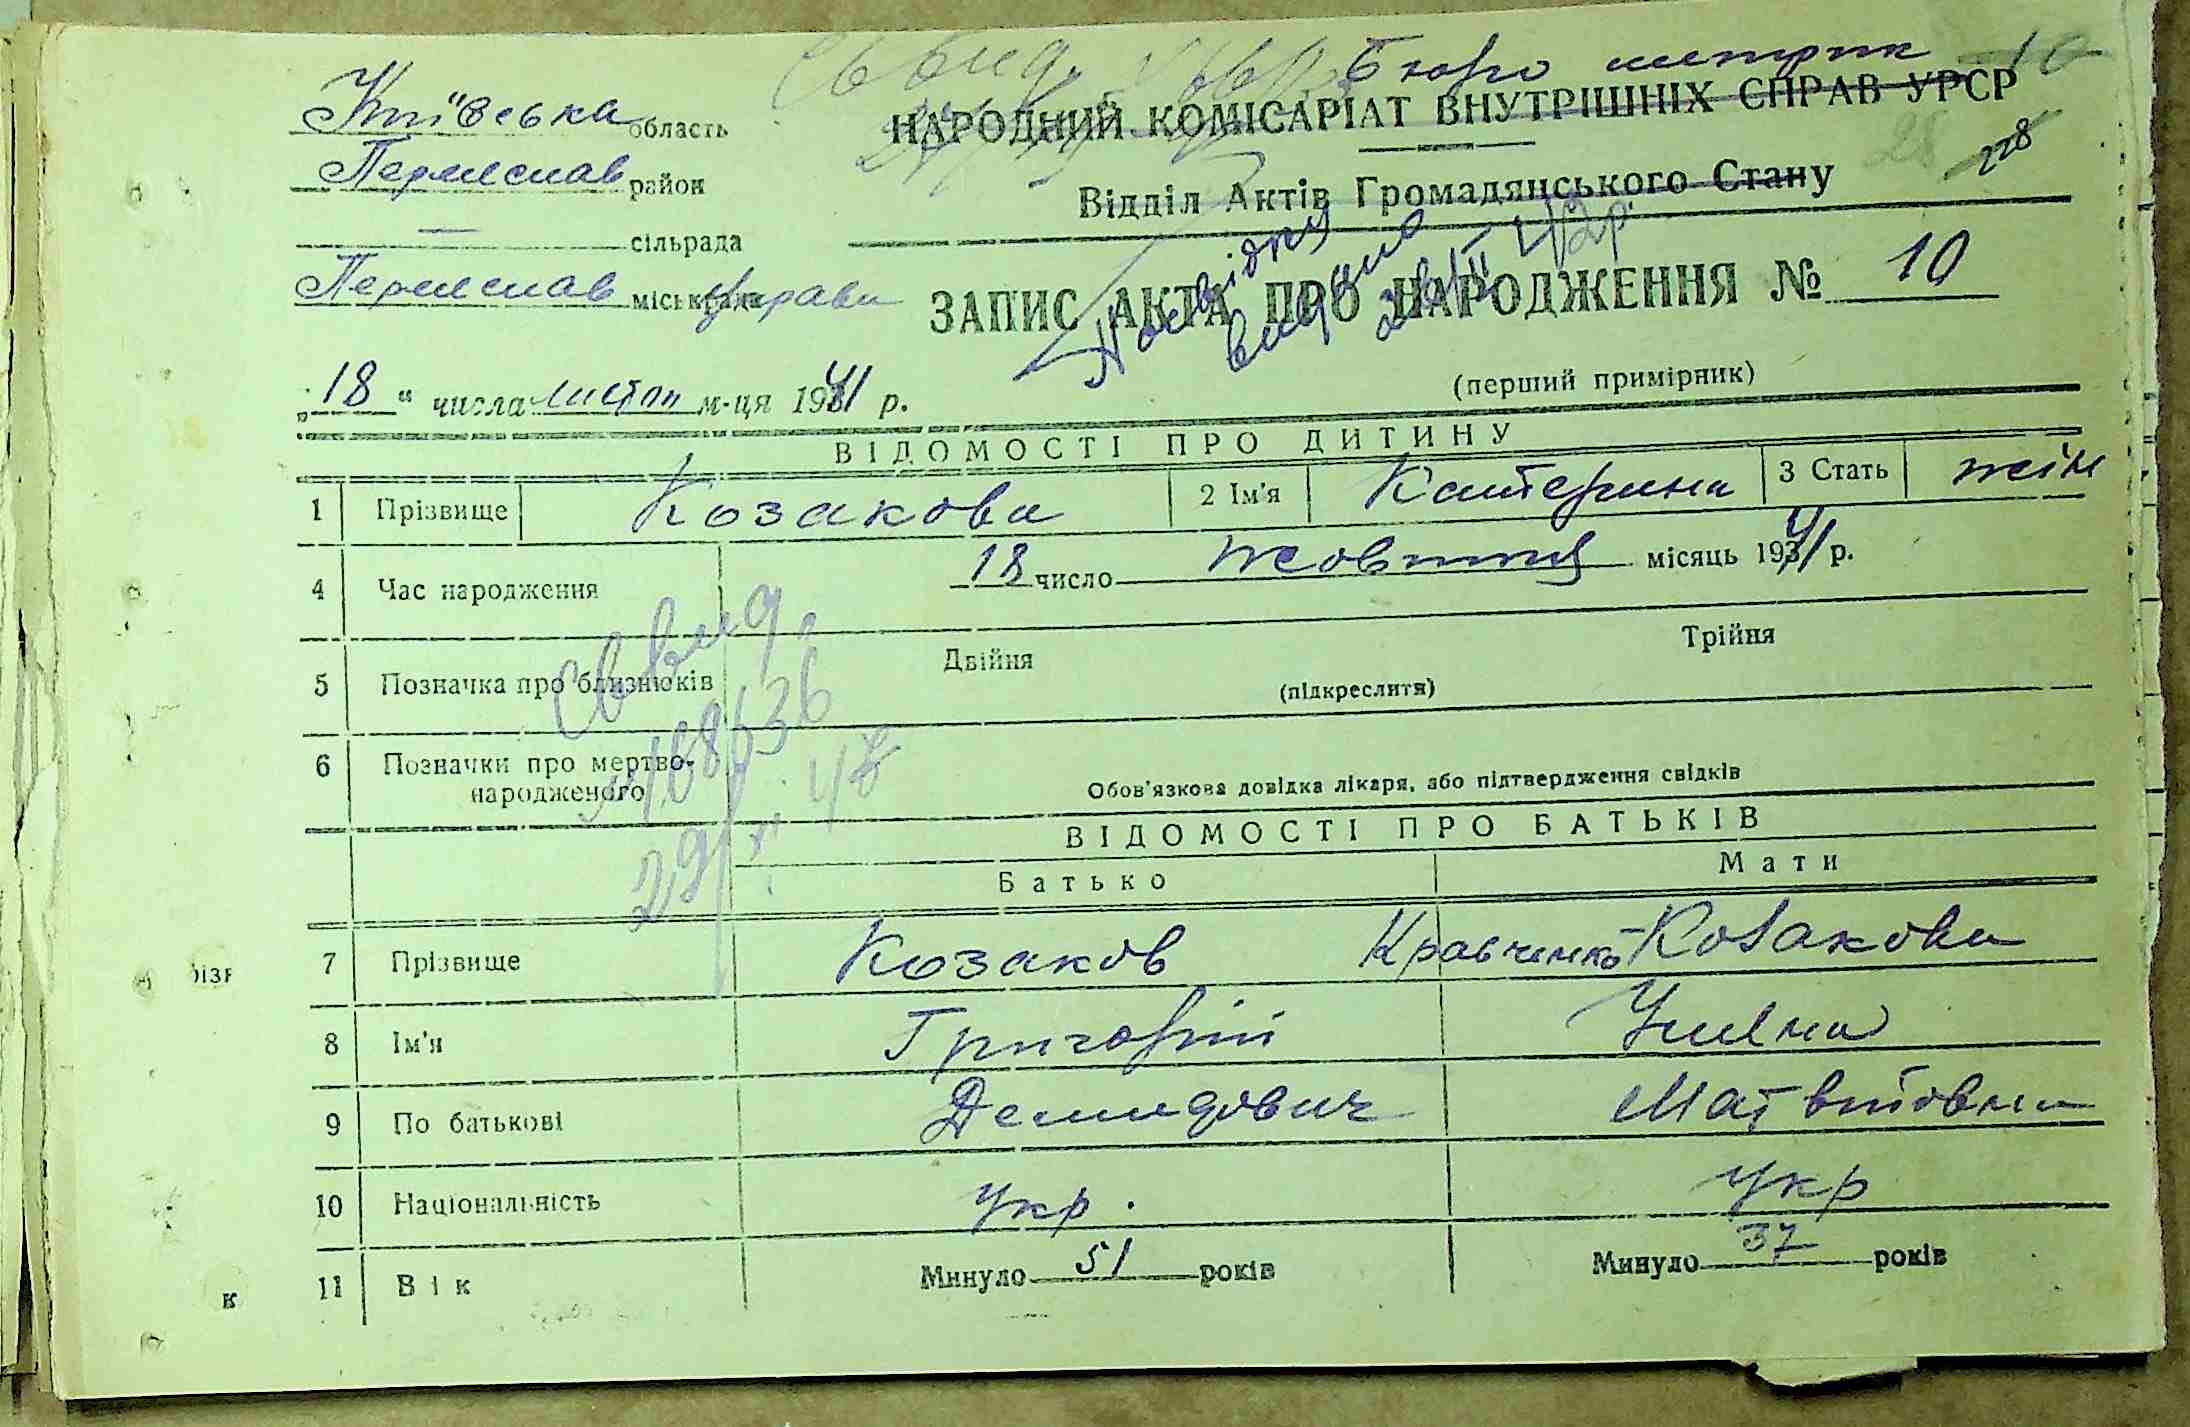 Бюро метрик 10
Київська область
НАРОДНИЙ КОМІСАРІАТ ВНУТРІШНІХ СПРАВ УРСР
Переяслав район
28 228
Відділ Актів Громадянського Стану
— сільрада
Переяслав міськрада Управа
ЗАПИС АКТА ПРО НАРОДЖЕННЯ № 10
видана
„18“ числа листоп м-ця 1941 р.
(перший примірник)
ВІДОМОСТІ ПРО ДИТИНУ
1 Прізвище Козакова 2 Ім'я Катерина 3 Стать жін
4 Час народження 18 число жовтня місяць 1941 р.
Свид.
5 Позначка про близнюків Двійня Трійня
(підкреслити)
6 Позначки про мертвонародженого Обов'язкова довідка лікаря, або підтвердження свідків
29/XI
ВІДОМОСТІ ПРО БАТЬКІВ
Батько Мати
7 Прізвище Козаков Кравченко-Козакова
8 Ім'я Григорій Уляна
9 По батькові Демидович Матвіїовна
10 Національність укр. укр
11 Вік Минуло 51 років Минуло 37 років
різв
к